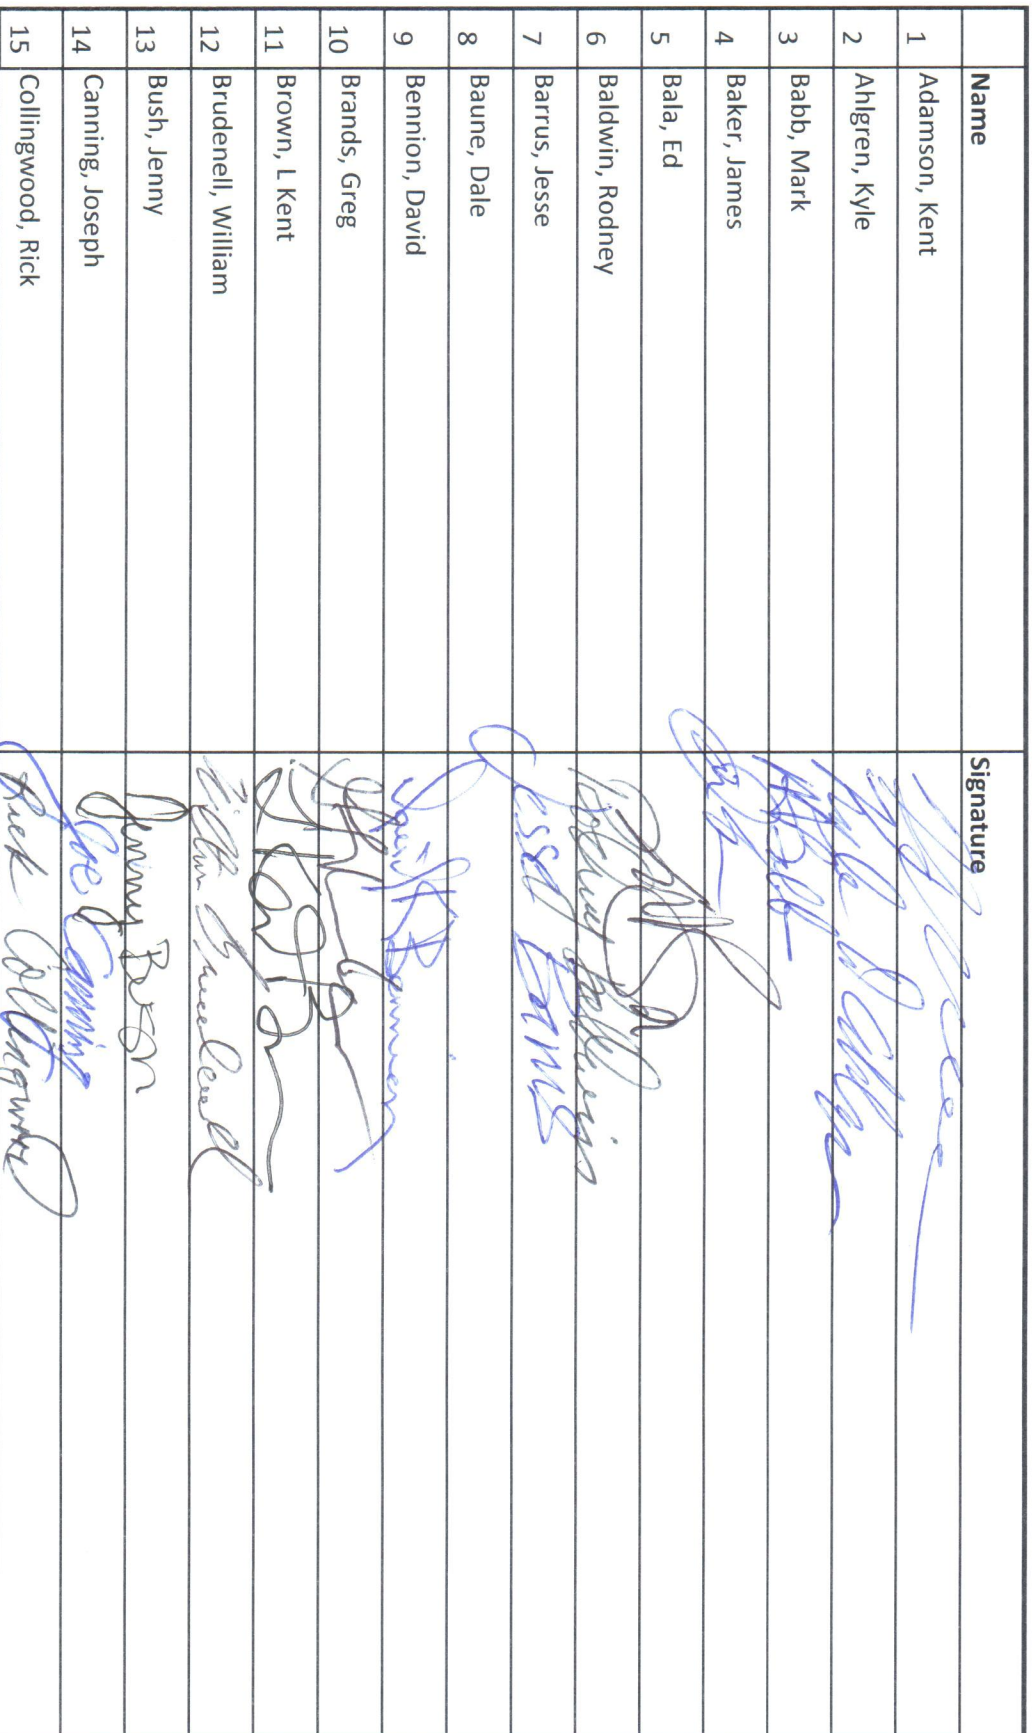 Name Signature
1 Adamson, Kent
2 Ahlgren, Kyle Kyle
3 Babb, Mark
4 Baker, James
5 Bala, Ed
6 Baldwin, Rodney Rodney
7 Barrus, Jesse Jesse Barrus
8 Baune, Dale
9 Bennion, David David Bennion
10 Brands, Greg
11 Brown, L Kent L Kent
12 Brudenell, William William Brudenell
13 Bush, Jenny Jenny
14 Canning, Joseph Joe Canning
15 Collingwood, Rick Rick Collingwood